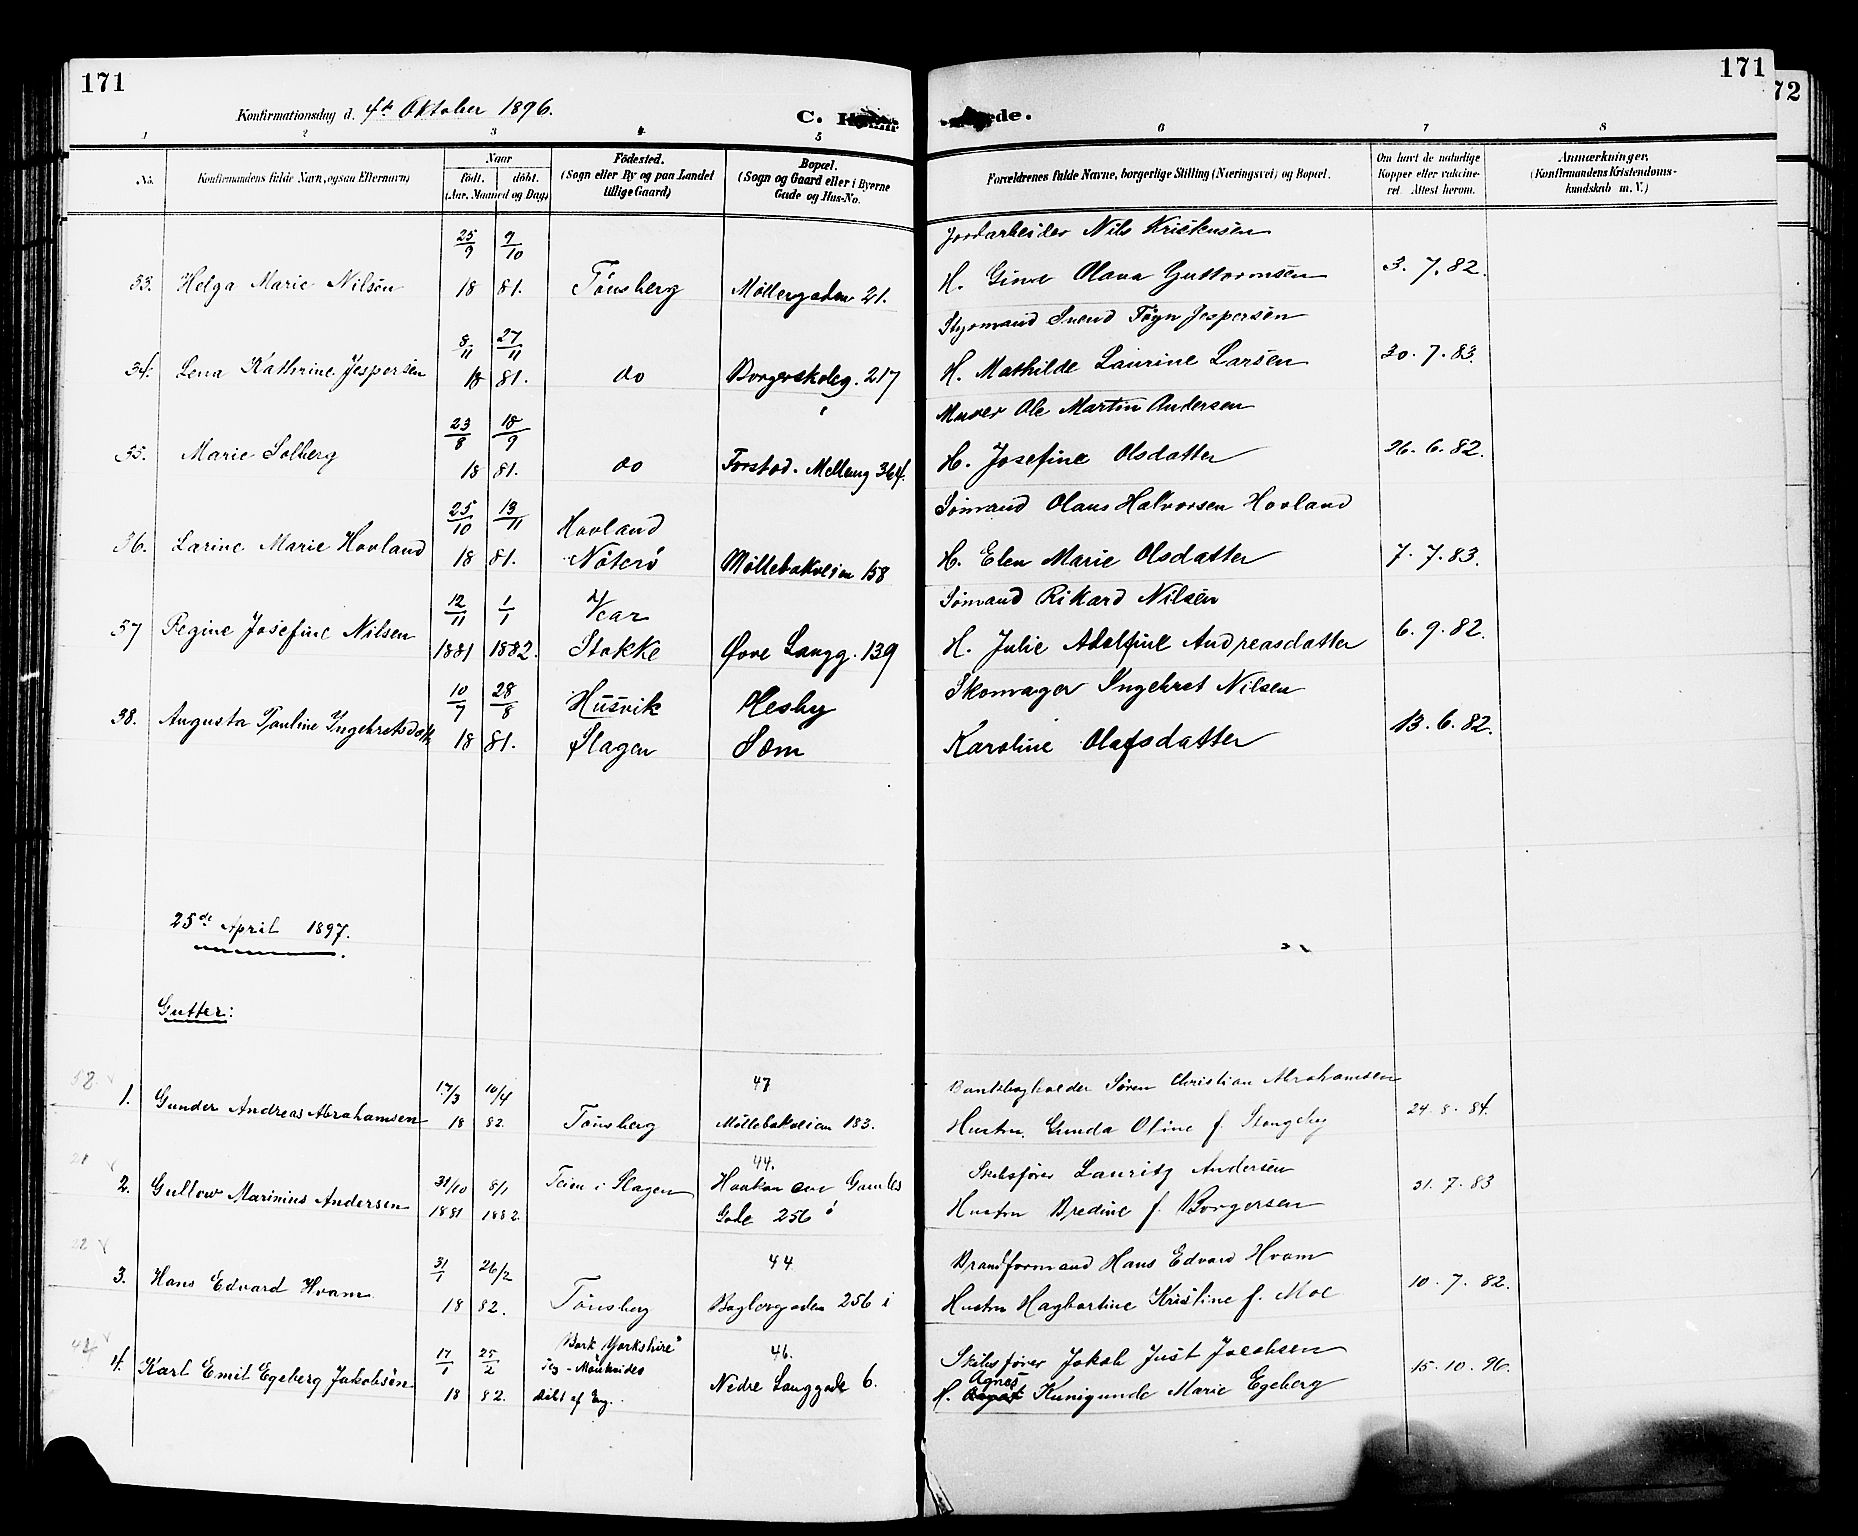 171
171
72
Konfirmationsdag d. 4de Oktober 1896.
C.
de.
1 2 3 4 5 6 7 8
No.
Konfirmandens fulde Navn, ogsaa Efternavn)
Naar
födt. döbt.
(Aar, Maaned og Dag)
Födested.
(Sogn eller By og paa Landet
tillige Gaard)
Bopæl.
(Sogn og Gaard eller i Byerne
Gade og Hus-No.
Forældrenes fulde Navne, borgerlige Stilling (Næringsvei) og Bopæl.
Om havt de naturlige
Kopper eller vaccine-
ret. Attest herom.
Anmærkninger.
(Konfirmandens Kristendoms-
kundskab m. V.)
25/9 9/10 Jordarbeider Nils Kristensen
33. Helga Marie Nilsen 18 81. Tönsberg Möllergaden 21. H. Gine Olava Guttormsen 3. 7. 82.
8/11 27/11 Styrmand Svend Föyn Jespersen
34. Lena Kathrine Jespersen 18 81. do Borgerskoleg. 217 H. Mathilde Laurine Larsen 30. 7. 83.
23/8 18/9 Murer Ole Martin Andersen
35. Marie Solberg 18 81. do Forstad. Mellemg 364. H. Josefine Olsdatter 26. 6. 82.
25/10 13/11 Hovland Sömand Olaus Halvorsen Hovland
36. Larine Marie Hovland 18 81. Nöterö Möllebakveien 158 H. Elen Marie Olsdatter 7. 7. 83.
12/11 1/1 Vear Sömand Rikard Nilsen
37 Regine Josefine Nilsen 1881 1882. Stokke Øvre Langg. 139 H. Julie Adolfine Andreasdatter 6. 9. 82.
10/7 28/8 Husvik Hesby Skomager Ingebret Nilsen
38. Augusta Pauline Ingebretsdatt 18 81. Slagen Sæm Karoline Olafsdatter 13. 6. 82.
25de April 1897.
Gutter:
52 17/3 10/4 47 Bankbogholder Sören Christian Abrahamsen
1. Gunder Andreas Abrahamsen 18 82. Tönsberg Möllebakveien 183. Hustru Gunda Oline f. Stangeby 24. 8. 84.
21 44. Skibsförer Lauritz Andersen
2. Gullow Marinius Andersen 31/10 1881 8/1 1882. Teien i Slagen Gamle Gade 256 Hustru Bredine f. Borgersen 31. 7. 83
22 31/1 26/2 44 Brandformand Hans Edvard Hvam
3. Hans Edvard Hvam 18 82. Tönsberg Baglergaden 256 i Hustru Hagbartine Kristine f. Moe 10. 7. 82.
17/1 25/2 Bark "Yorkshire" 46. Skibsförer Jakob Just Jacobsen
4. Karl Emil Egeberg Jakobsen 18 82. Döbt af Eng. Nedre Langgade 6. H. Agnes Kunigunde Marie Egeberg 15. 10. 96.